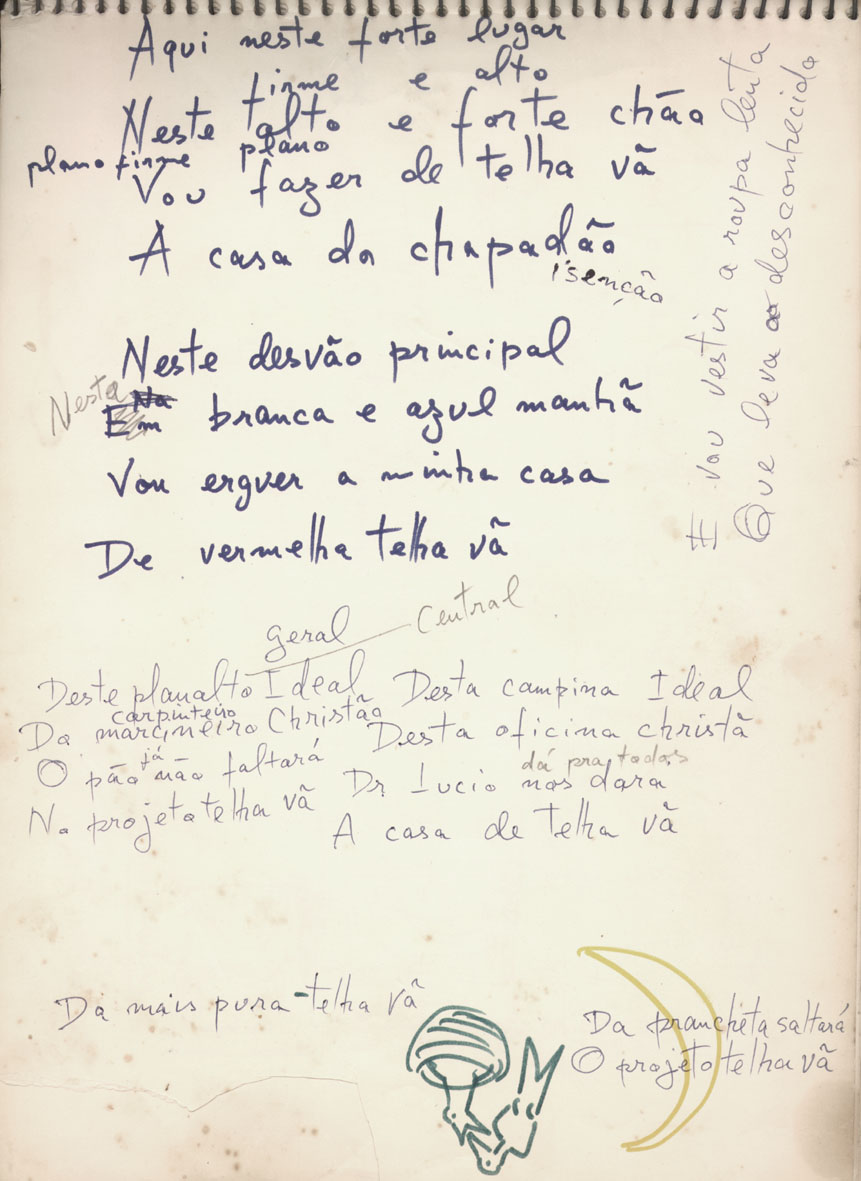 Aqui neste forte lugar
firme e alto
Neste alto e forte chão
plano firme plano
Vou fazer de telha vã
A casa do chapadão
isenção
Neste desvão principal
Nesta Na
Em branca e azul manhã
Vou erguer a minha casa
De vermelha telha vã
E vou vestir a roupa lenta
Que leva ao desconhecido
geral central
Deste planalto Ideal
carpinteiro
Do marcineiro Christão
já
O pão não faltará
No projeto telha vã
Desta campina Ideal
Desta oficina christã
dá pra todos
Dr Lucio nos dara
A casa de telha vã
Da mais pura telha vã
Da prancheta saltará
O projeto telha vã